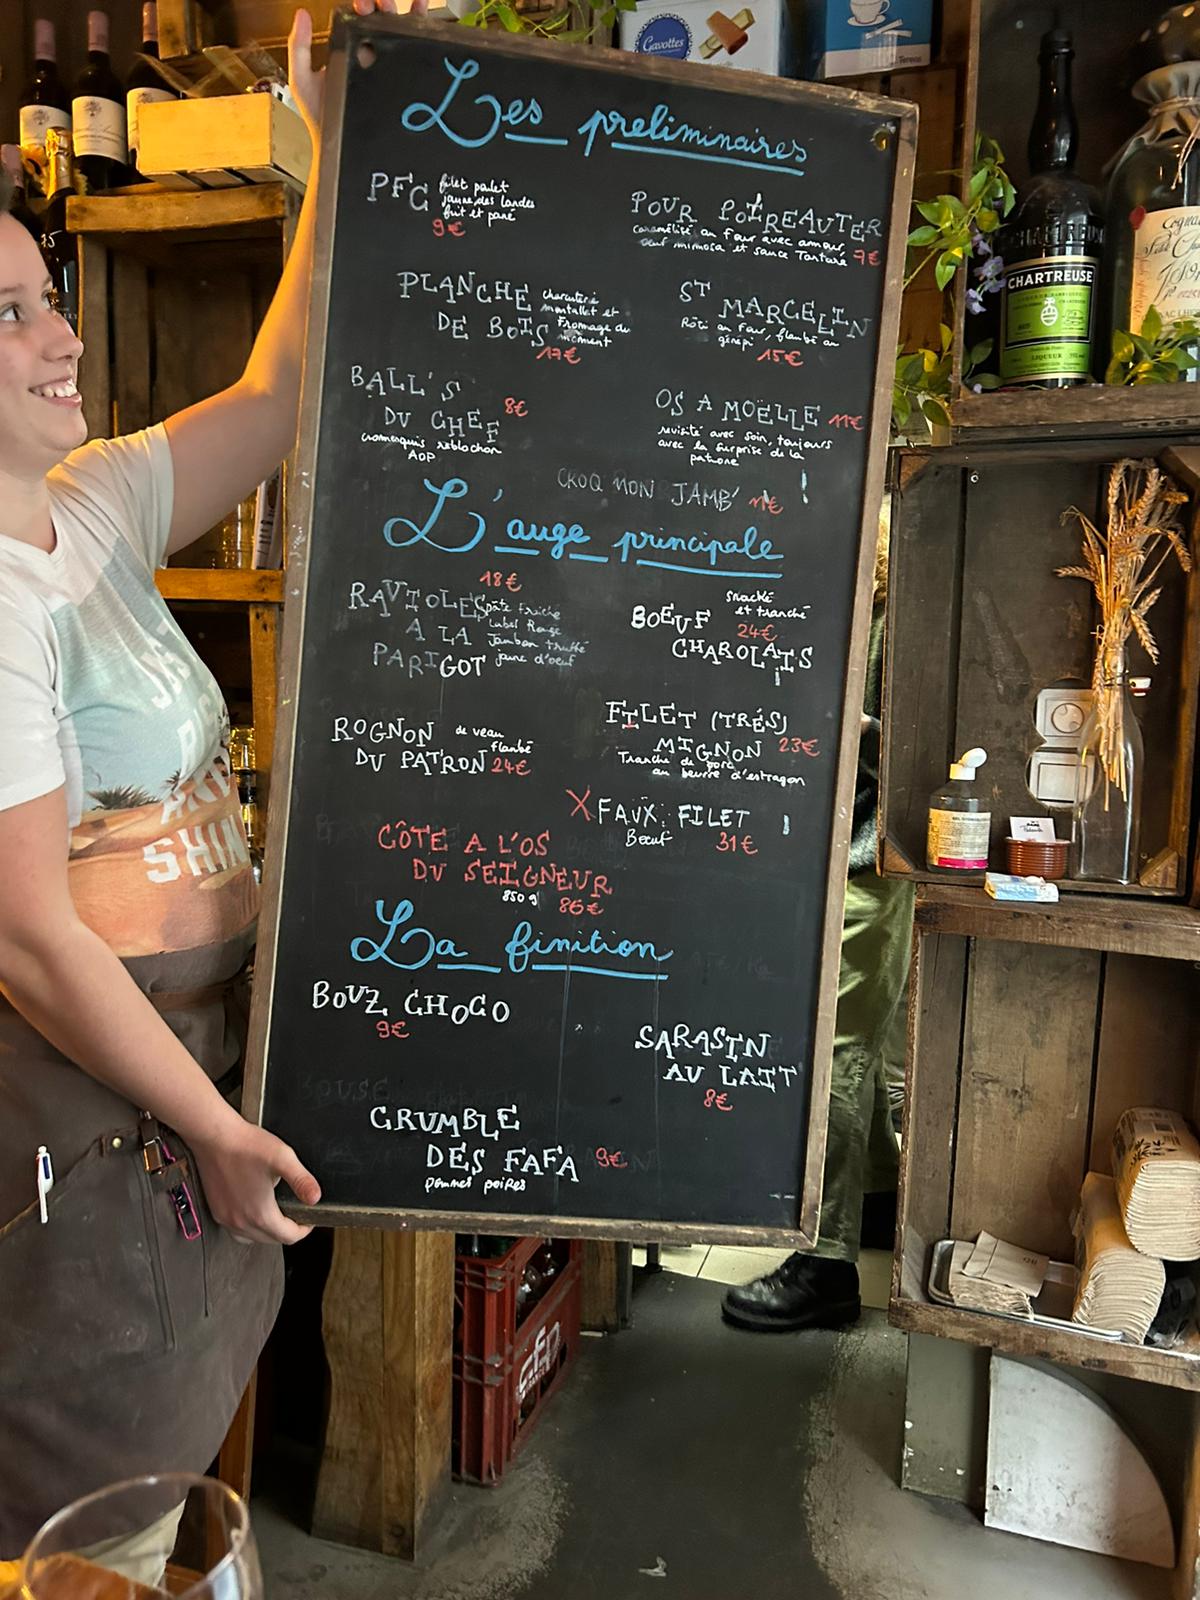 Les preliminaires
PFC
filet poulet
jaune des landes
frit et pané
9€
POUR POIREAUTER
caramélisé au four avec amour
oeuf mimosa et sauce Tartare 7€
PLANCHE
DE BOIS
charcuterie
montallet et
Fromage du
moment
17€
ST MARCELLIN
Rôti au four, flambé au
génépi 15€
BALL'S
DU CHEF 8€
cromesquis reblochon
AOP
OS A MOËLLE 11€
revisité avec soin, toujours
avec la surprise de la
patrone
CROQ MON JAMB' 11€ !
L'auge principale
18€
RAVIOLES
A LA
PARIGOT
pâte fraîche
Label Rouge
Jambon truffé
jaune d'oeuf
BOEUF
snacké
et tranché
24€
CHAROLAIS
ROGNON
DU PATRON
de veau
flambé
24€
FILET (TRÉS)
MIGNON 23€
Tranche de porc
au beurre d'estragon
X FAUX. FILET
Boeuf 31€
CÔTE A L'OS
DU SEIGNEUR
850 g 86€
La finition
BOUZ CHOCO
9€
SARASIN
AU LAIT
8€
CRUMBLE
DES FAFA 9€
pommes poires
Gavottes
CHARTREUSE
LIQUEUR
Cognac
cfp
SHIN